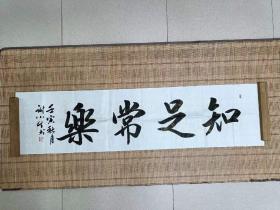 知足常樂
壬寅秋月